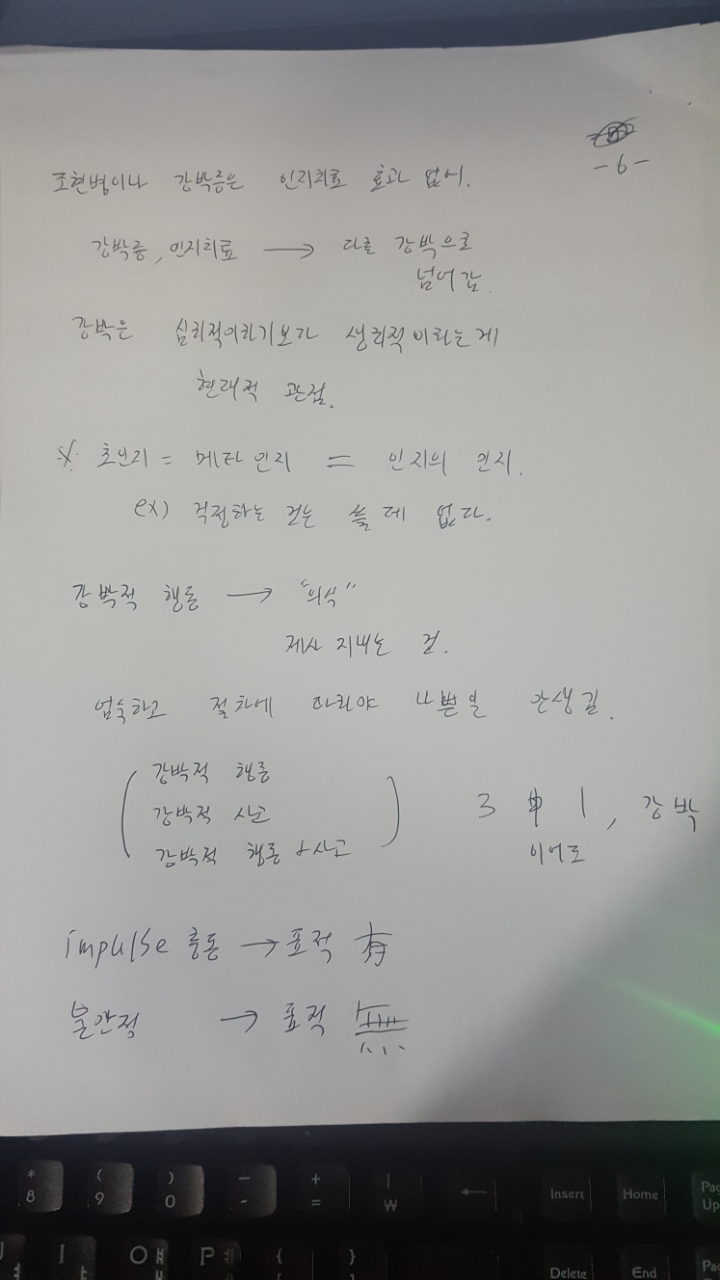 -6-
조현병이나 강박증은 인지치료 효과 없어.
강박증, 인지치료 → 다른 강박으로
넘어감.
강박은 심리적이라기보다 생리적이라는게
현대적 관점.
※ 초인지 = 메타인지 = 인지의 인지.
ex) 걱정하는 건는 쓸데 없다.
강박적 행동 → "의식"
제사 지내는 것.
엄숙하고 절차에 따라야 나쁜일 안생김.
강박적 행동
강박적 사고
강박적 행동 + 사고
3 中 1, 강박
이어도
impulse 충동 → 표적 有
불안적 → 표적 無
* 8
( 9
) 0
- -
+ =
| ₩
←
Insert
Home
I
O
P
{
}
Delete
End